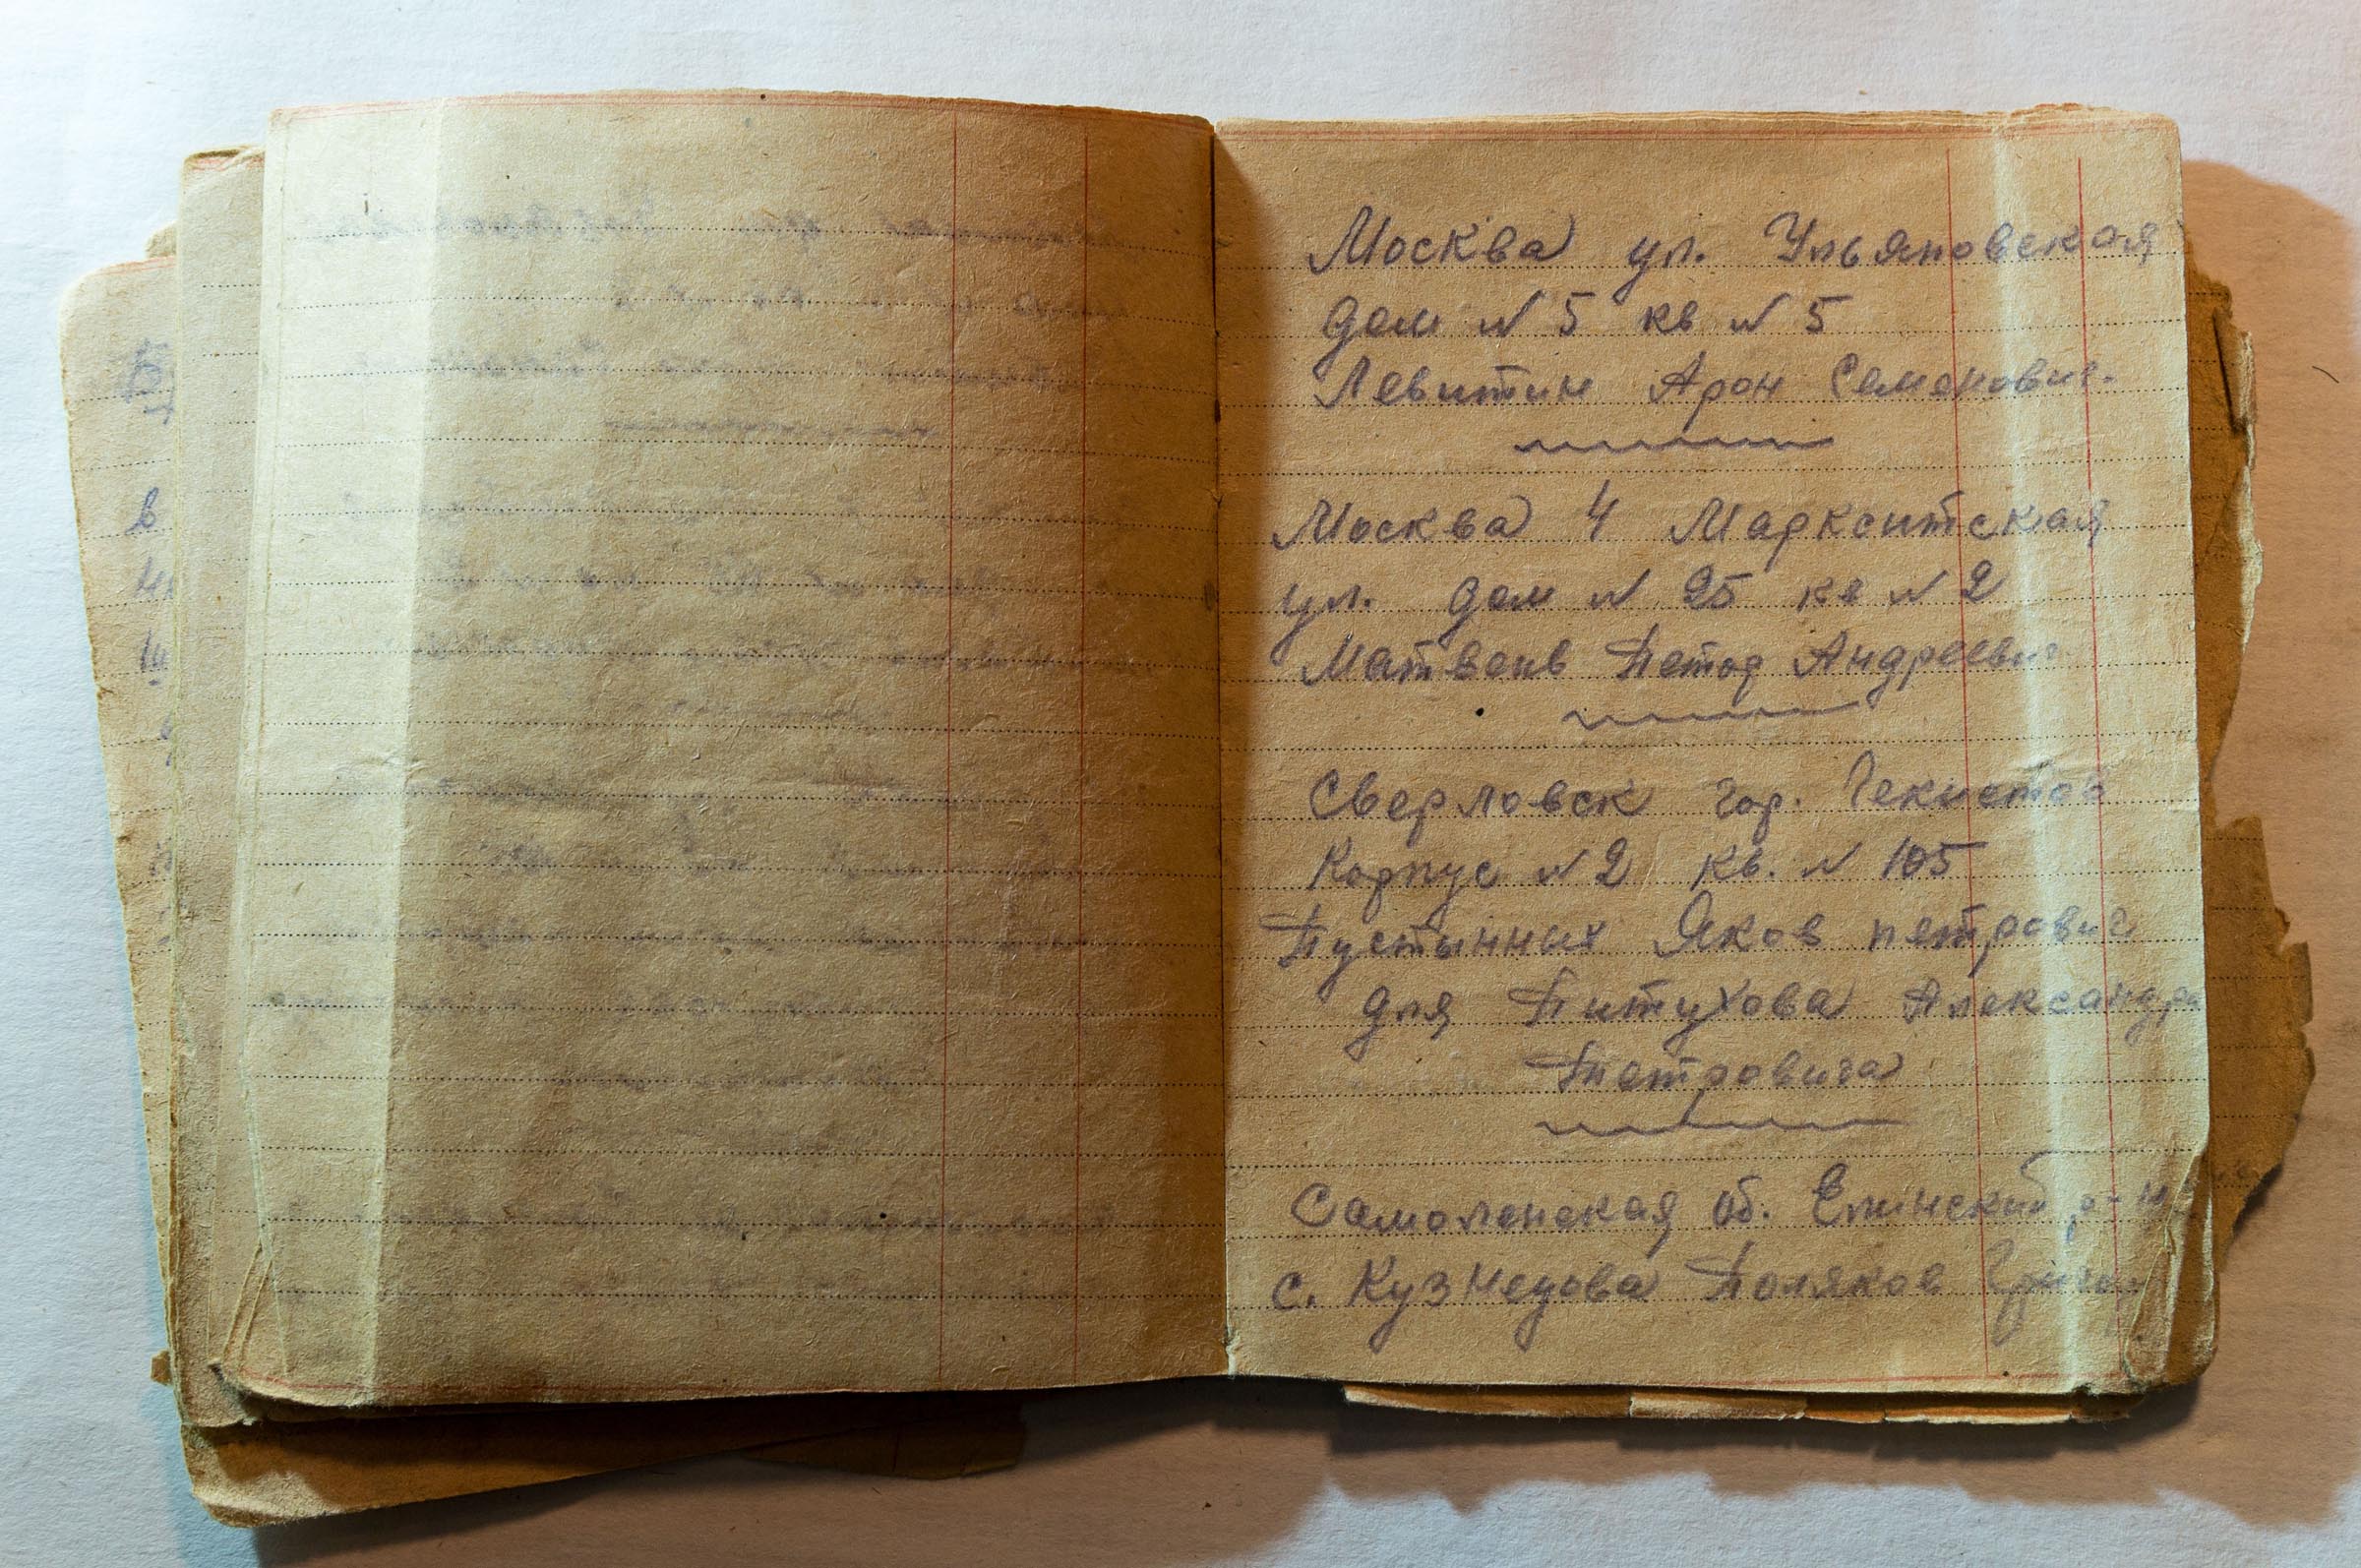 Москва ул. Ульяновская
дом N 5 кв N 5
Левитин Арон Семенович.
Москва 4 Марксистская
ул. дом N 25 кв N 2
Матвеив Петод Андреевич
Сверловск гор. Чекистов
Корпус N 2 кв. N 105
Пустынных Яков петрович
для Питухова Александра
Петровича
Самоленская об. Елинский р-н
с. Кузнецова Поляков